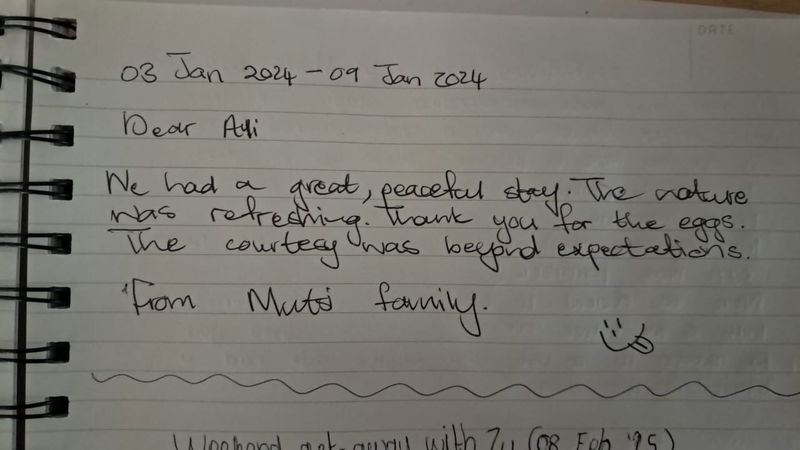 DATE
03 Jan 2024 – 09 Jan 2024
Dear
We had a great, peaceful stay. The nature
was refreshing. Thank you for the eggs.
The courtesy was beyond expectations.
From Muti family.
Weekend get-away with Zu (08 Feb '25)